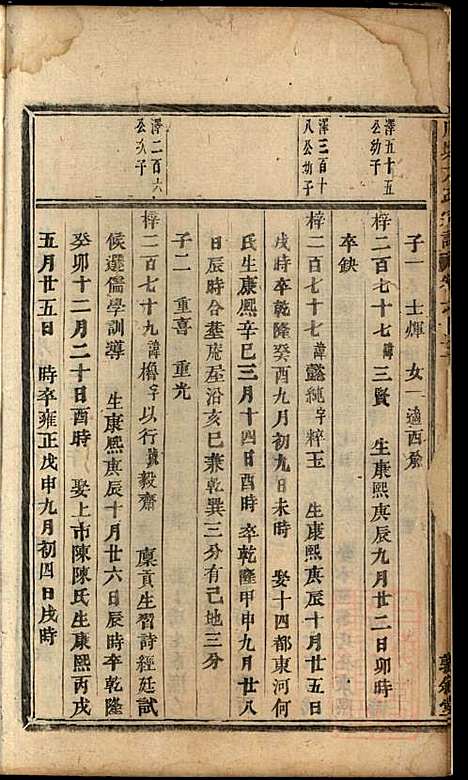 澤五十五
公幼子
澤三百十
八公幼子
澤二百六
公次子
子一 士煇 女一適西
梓二百七十七諱三賢 生康熙庚辰九月廿二日卯時
卒缺
梓二百七十七諱懿純字粹玉 生康熙庚辰十月廿五日
戌時卒乾隆癸酉九月初九日未時 娶十四都東河何
氏生康熙辛巳三月十四日酉時卒乾隆甲申九月廿八
日辰時合墓庵屋沿亥巳兼乾巽三分有己地三分
子二 重喜 重光
梓二百七十九諱櫓字以行號毅齋 廩貢生習詩經廷試
候選儒學訓導 生康熙庚辰十月廿六日辰時卒乾隆
癸卯十二月二十日酉時 娶上市陳陳氏生康熙丙戌
五月廿五日 時卒雍正戊申九月初四日戌時